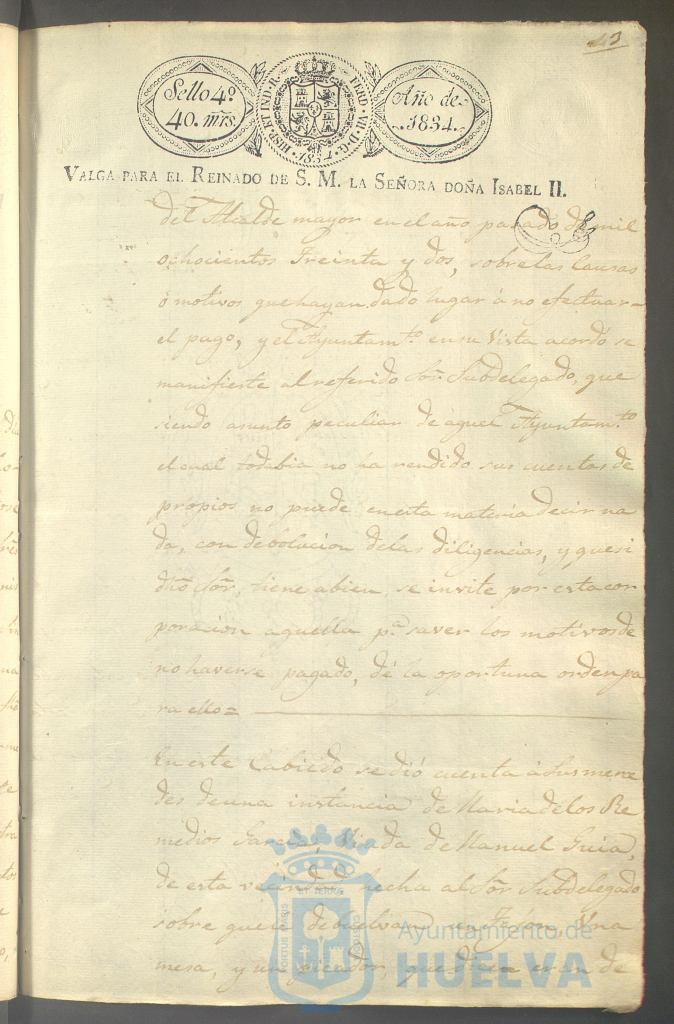 43
Sello 4º
40. mrs.
HISP. ET IND. R. FERD. VII. D. G. 1834
Año de
1834.
VALGA PARA EL REINADO DE S. M. LA SEÑORA DOÑA ISABEL II.
del Alcalde mayor en el año pasado de mil
ochocientos treinta y dos, sobre las causas
ó motivos que hayan dado lugar á no efectuar
el pago, y el Ayuntamto. en su Vista acordó se
manifieste al referido Sor. Subdelegado, que
siendo asunto peculiar de aquel Ayuntamto.
el cual todabia no ha rendido sus cuentas de
propios no puede en esta materia decir na
da, con debolucion de las diligencias, y que si
dho Sor, tiene abien, se invite por esta cor
poracion aquella pa. saver los motivos de
no haverse pagado, dé la oportuna orden pa
ra ello=
En este Cabildo se dió cuenta á sus merce
des de una instancia de Maria de los Re
medios Garcia, Viuda de Manuel Guia,
de esta vecindad hecha al Sor Subdelegado
sobre que le debuelvan una
mesa, y un picador, que dice eran de
PORTUS MARIS
ET TERRE
CUSTODIA
Ayuntamiento de
HUELVA